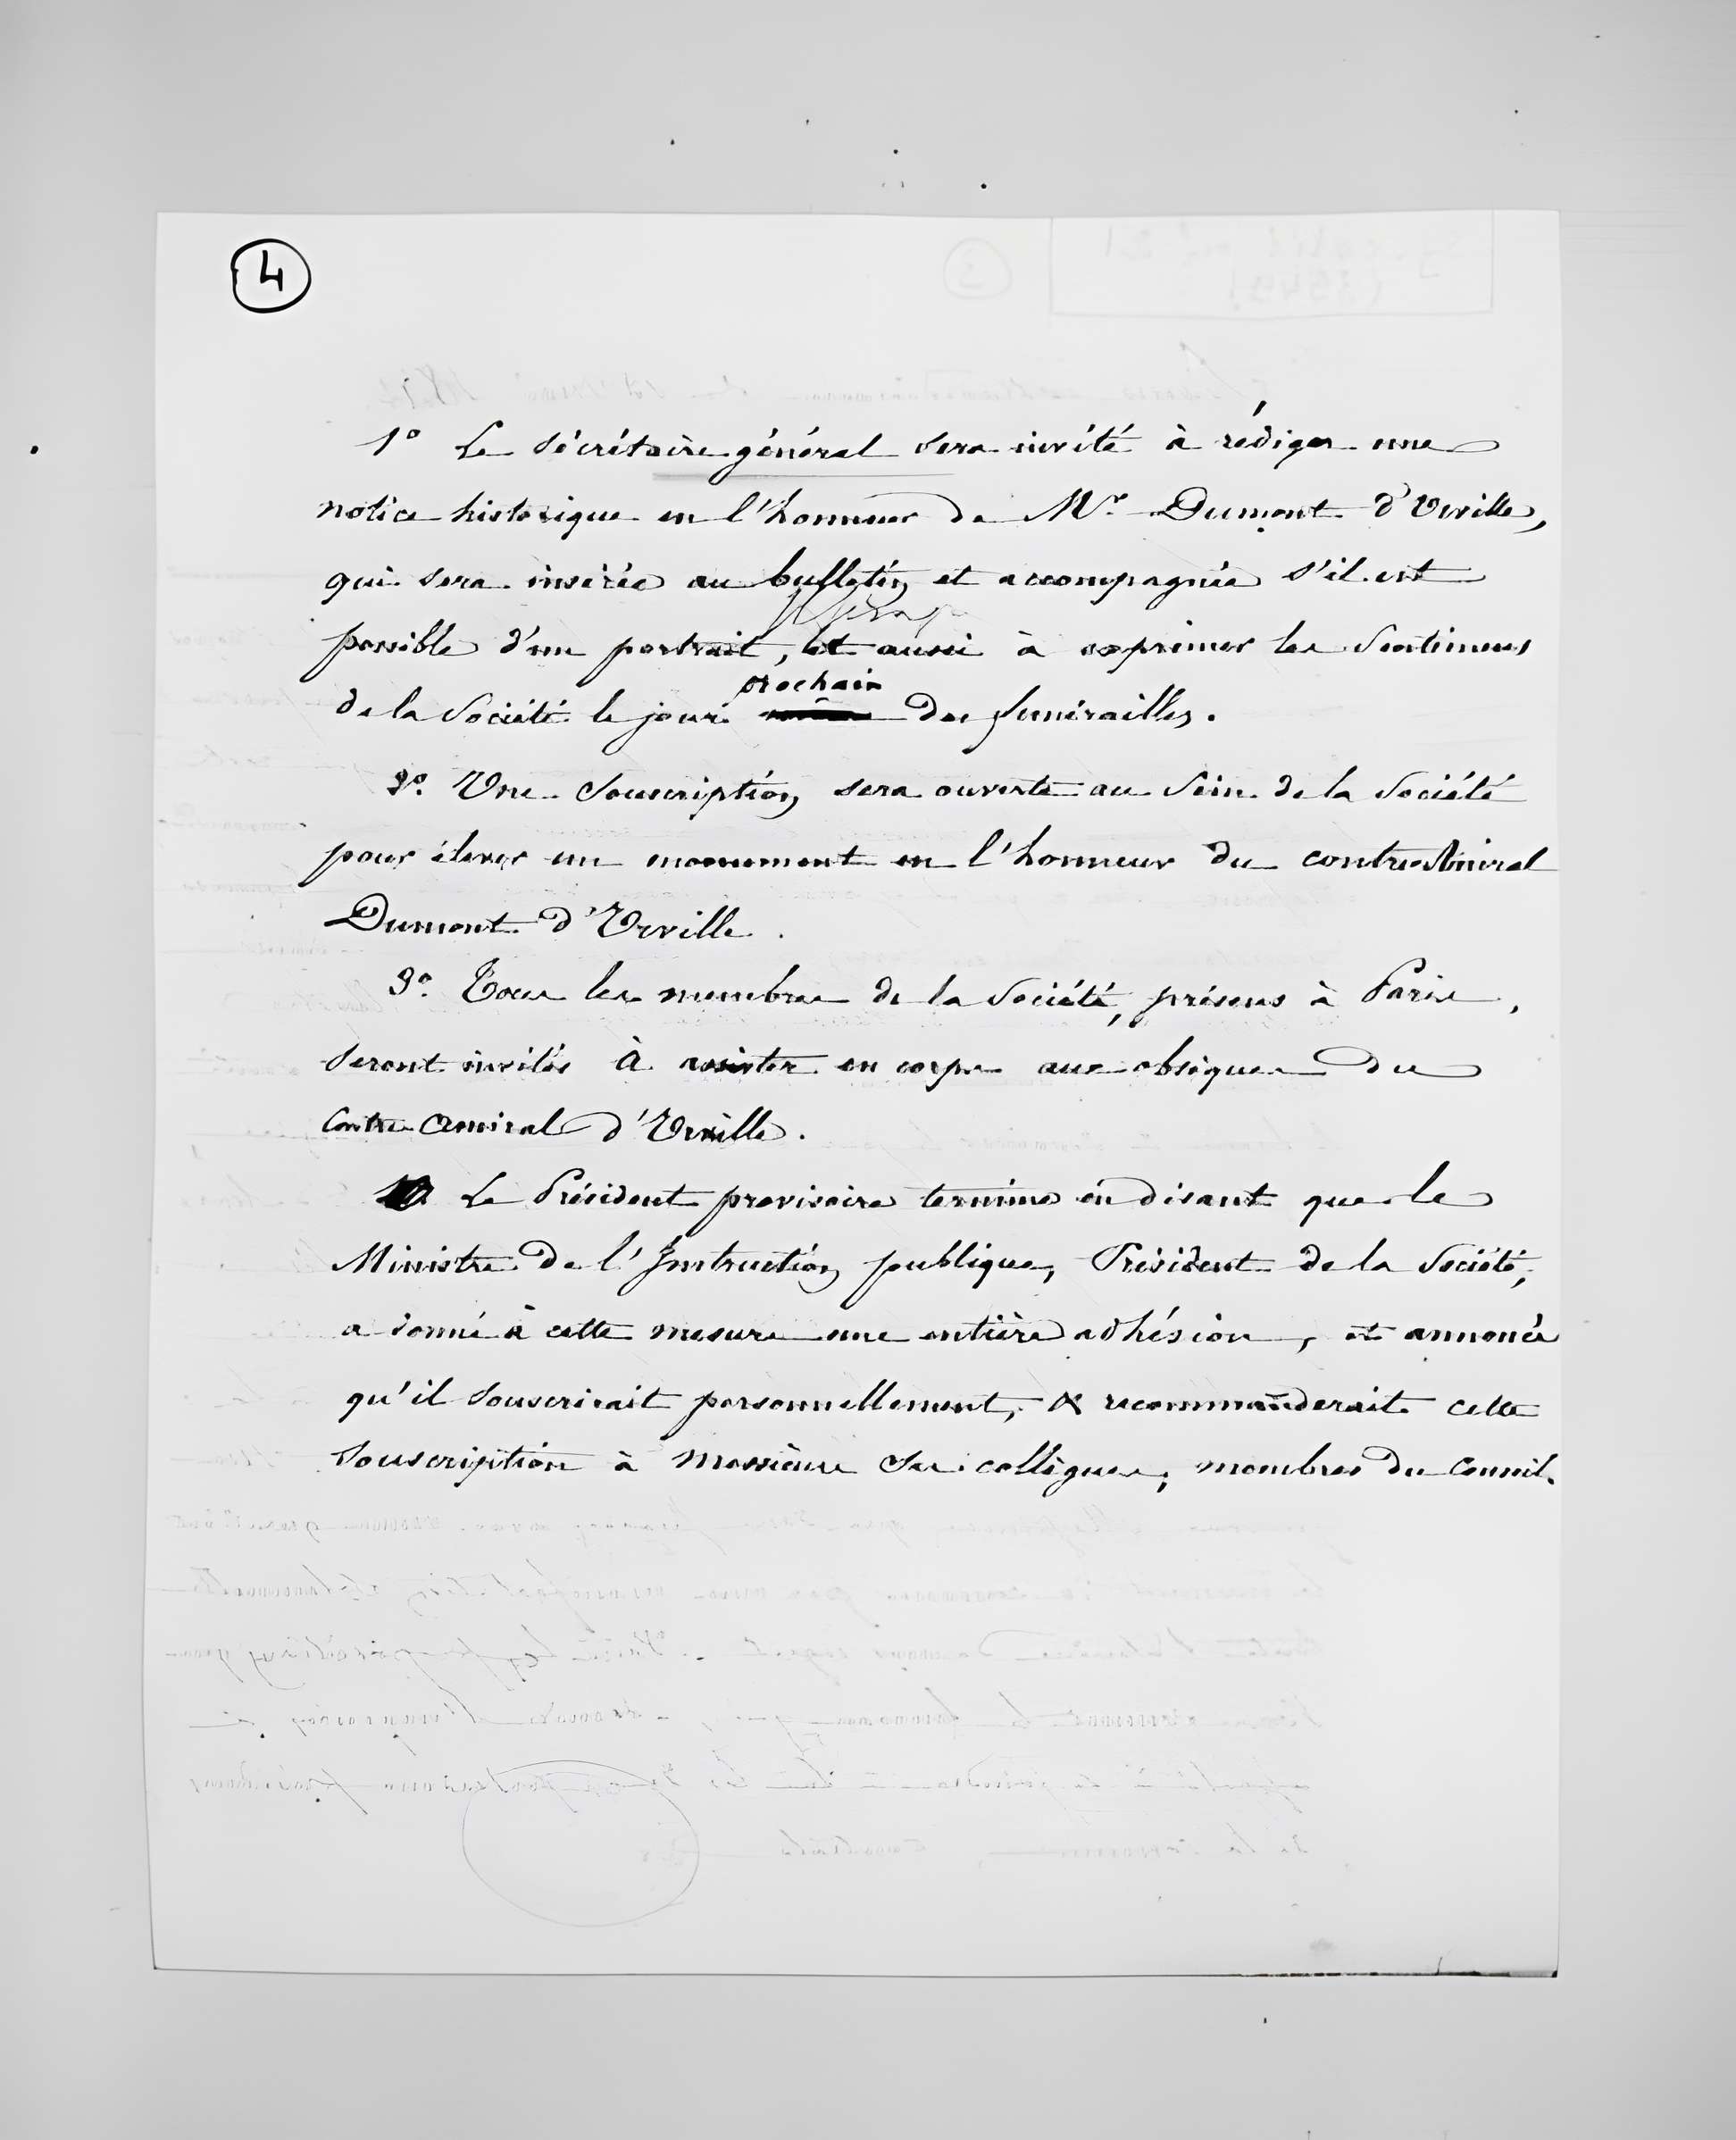 4
1° Le Sécrétaire général sera invité à rédiger une
notice historique en l'honneur de Mr. Dumont d'Urville,
qui sera insérée au bulletin et accompagnée s'il est
possible d'un portrait, et aussi à exprimer les Sentimens
prochain
de la Société le jour des funérailles.
2°. Une Souscription sera ouverte au Sein de la Société
pour élever un monument en l'honneur du contre-Amiral
Dumont d'Urville.
3°. Tous les membres de la Société, présens à Paris,
Seront invités à assister en corps aux obsèques du
Contre Amiral d'Urville.
Le Président provisoire termine en disant que le
Ministre de l'Instruction publique, Président de la Société,
a donné à cette mesure une entière adhésion, et annoncé
qu'il Souscrirait personnellement, & recommanderait cette
Souscription à messieurs Ses collègues, membres du Conseil.